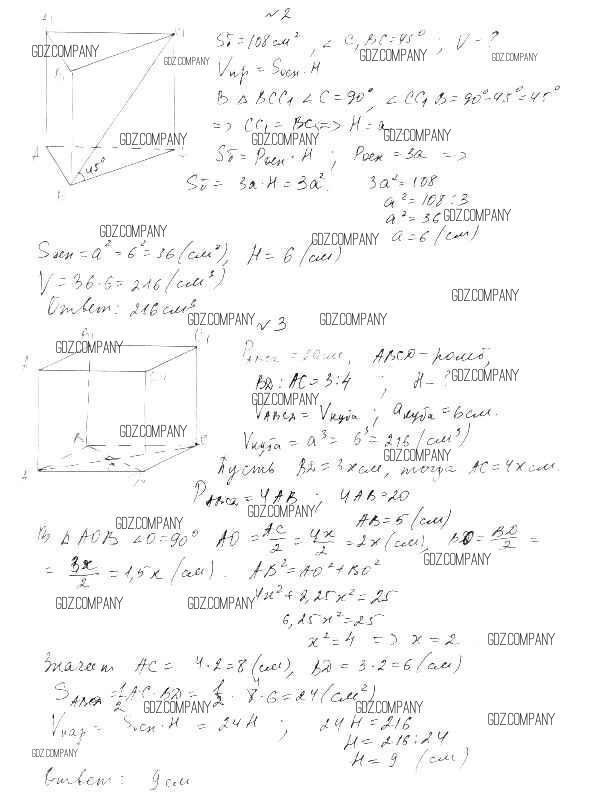 №2
Sб = 108 см², ∠C₁BC = 45°; V - ?
Vпр = Sосн · H
В △ BCC₁ ∠C = 90°, ∠CC₁B = 90° - 45° = 45°
=> CC₁ = BC => H = a
Sб = Pосн · H; Pосн = 3a =>
Sб = 3a · H = 3a². 3a² = 108
a² = 108 : 3
a² = 36
a = 6 (см)
Sосн = a² = 6² = 36 (см²), H = 6 (см)
V = 36 · 6 = 216 (см³)
Ответ: 216 см³
№3
Pавсд = 20 см, ABCD - ромб,
BD : AC = 3 : 4; H - ?
VABCD = Vкуба; aкуба = 6 см.
Vкуба = a³ = 6³ = 216 (см³)
Пусть BD = 3x см, тогда AC = 4x см.
PABCD = 4AB; 4AB = 20
AB = 5 (см)
В △ AOB ∠O = 90° AO = AC/2 = 4x/2 = 2x (см), BO = BD/2 =
= 3x/2 = 1,5x (см). AB² = AO² + BO²
4x² + 2,25x² = 25
6,25x² = 25
x² = 4 => x = 2
Значит AC = 4 · 2 = 8 (см), BD = 3 · 2 = 6 (см)
SABCD = 1/2 AC · BD = 1/2 · 8 · 6 = 24 (см²)
Vпар = Sосн · H = 24H; 24H = 216
H = 216 : 24
H = 9 (см)
Ответ: 9 см
GDZ.COMPANY